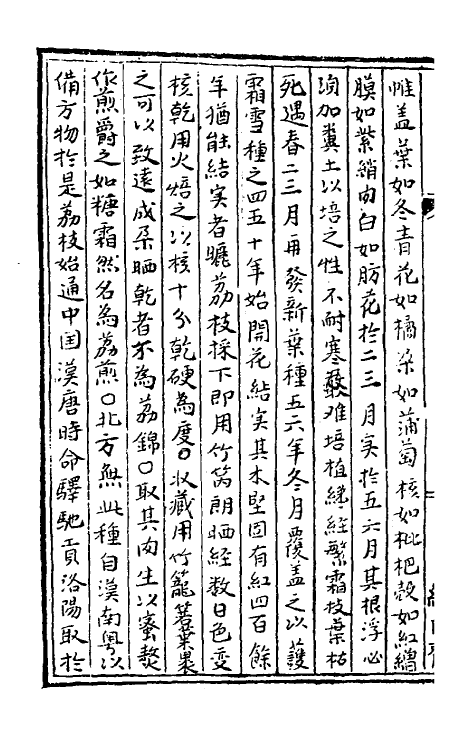 惟盖葉如冬青花如橘朶如蒲萄核如枇杷殼如紅繒
膜如紫綃肉白如肪花於二三月实於五六月其根浮必
須加糞土以培之性不耐寒最难培植纔經繁霜枝葉枯
死遇春二三月再發新葉種五六年冬月覆盖之以護
霜雪種之四五十年始開花結实其木堅固有紅四百餘
年猶能結实者曬荔枝採下即用竹笍朗晒经数日色变
核乾用火焙之以核十分乾硬為度〇收藏用竹籠箬葉裹
之可以致遠成朶晒乾者亦為荔錦〇取其肉生以蜜熬
作煎爵之如糖霜然名為荔煎〇北方無此種自漢南粤以
備方物於是荔枝始通中国漢唐時命驛馳貢洛陽取於